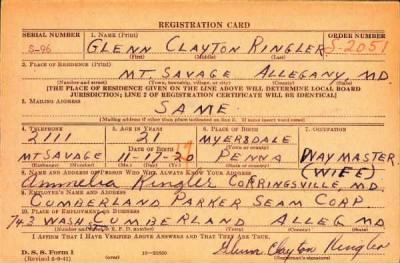 REGISTRATION CARD
SERIAL NUMBER 1. NAME (Print) ORDER NUMBER
S-96 GLENN CLAYTON RINGLER S-2051
(First) (Middle) (Last)
2. PLACE OF RESIDENCE (Print)
MT. SAVAGE ALLEGANY MD
(Number and street) (Town, township, village, or city) (County) (State)
[THE PLACE OF RESIDENCE GIVEN ON THE LINE ABOVE WILL DETERMINE LOCAL BOARD
JURISDICTION; LINE 2 OF REGISTRATION CERTIFICATE WILL BE IDENTICAL]
3. MAILING ADDRESS
SAME
[Mailing address if other than place indicated on line 2. If same insert word same]
4. TELEPHONE 5. AGE IN YEARS 6. PLACE OF BIRTH 7. OCCUPATION
2111 21 MYERSDALE
DATE OF BIRTH
MT SAVAGE 1-17-20 PENNA WAY MASTER
8. NAME AND ADDRESS OF PERSON WHO WILL ALWAYS KNOW YOUR ADDRESS (WIFE)
Ringler CORRINGSVILLE, MD.
9. EMPLOYER'S NAME AND ADDRESS
CUMBERLAND PARKER SEAM CORP
10. PLACE OF EMPLOYMENT OR BUSINESS
743 WASH. CUMBERLAND ALLEG MD
I AFFIRM THAT I HAVE VERIFIED ABOVE ANSWERS AND THAT THEY ARE TRUE.
D. S. S. Form 1
(Revised 6-9-41) 16-21630 Glenn Clayton Ringler